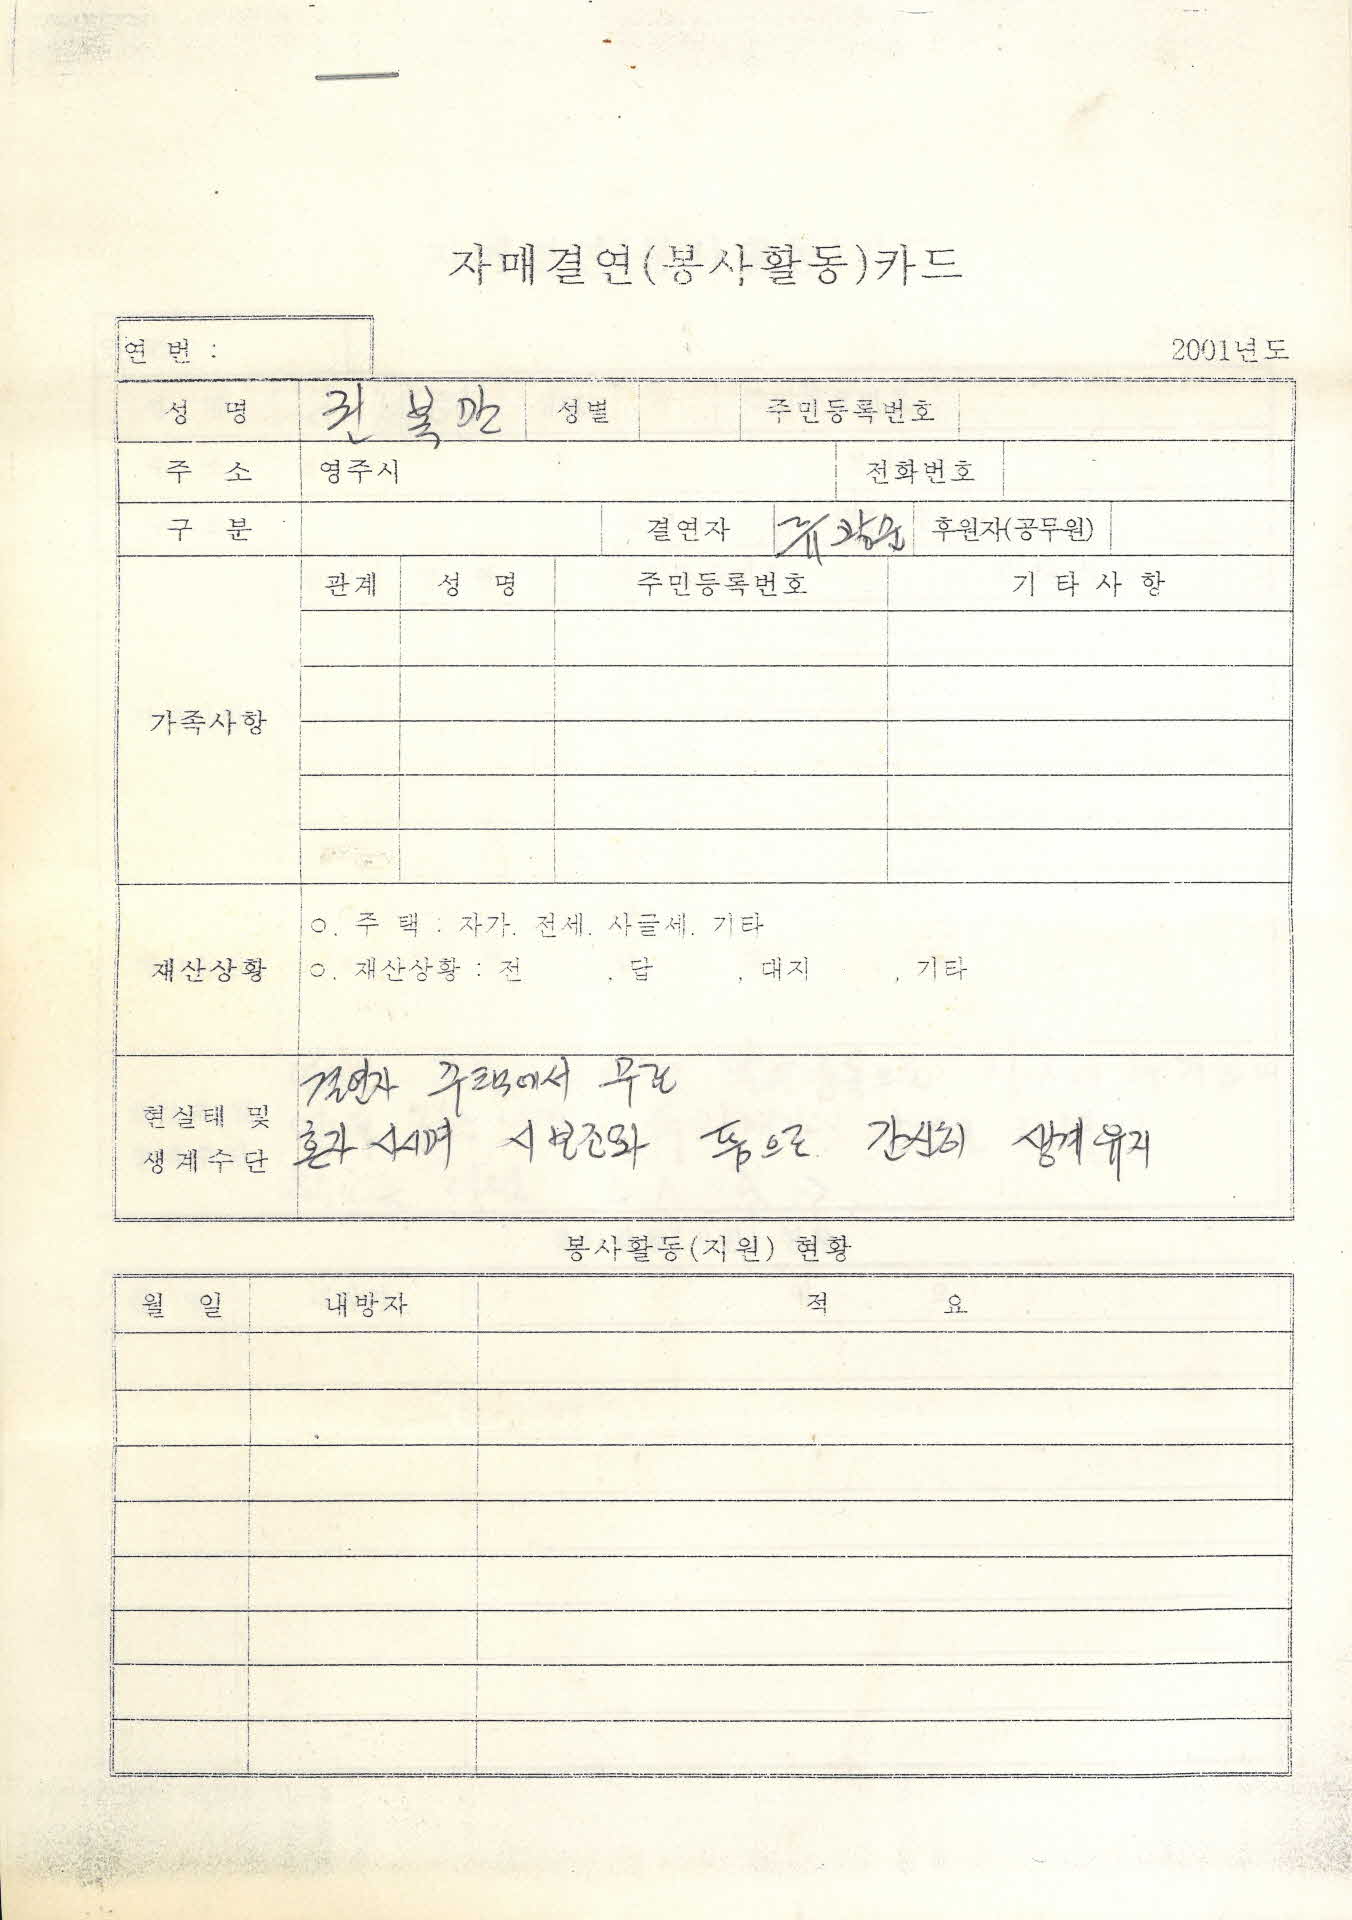 자매결연(봉사활동)카드
연 번 :
2001년도
성 명 권 복만 성별 주민등록번호
주 소 영주시 전화번호
구 분 결연자 류창순 후원자(공무원)
관계 성 명 주민등록번호 기 타 사 항
가족사항
○. 주 택 : 자가. 전세. 사글세. 기타
재산상황 ○. 재산상황 : 전 , 답 , 대지 , 기타
결연자 주택에서 무료
현실태 및
혼자 사시며 시보조와 품으로 간신히 생계유지
생계수단
봉사활동(지원) 현황
월 일 내방자 적 요